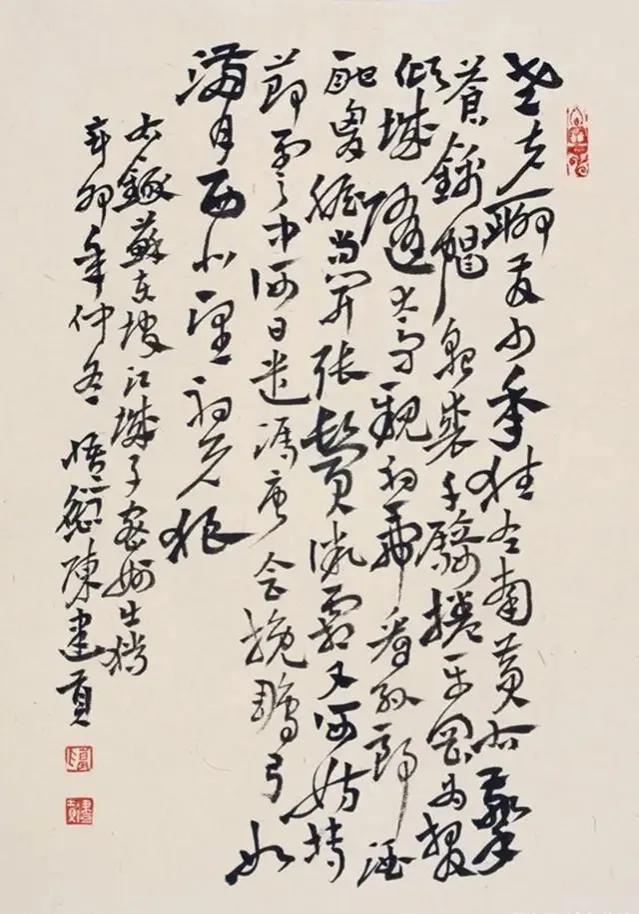 老夫聊发少年狂左牽黃右擎
蒼錦帽貂裘千騎捲平岡為報
傾城隨太守親射虎看孫郎酒
酣胸膽尚開張鬢微霜又何妨持
節雲中何日遣馮唐會挽鵰弓如
滿月西北望射天狼
右錄蘇東坡江城子密州出獵
辛卯年仲冬 悟 陳建貢